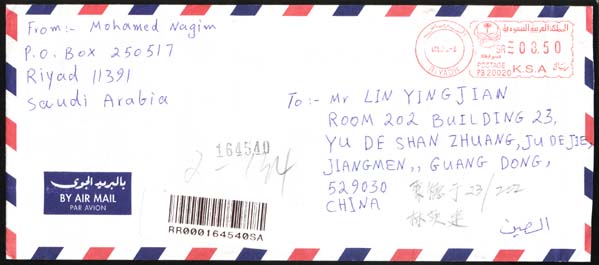 From:- Mohamed Nagim
P.O. Box 250517
Riyad 11391
Saudi Arabia
المملكة العربية السعودية
SR 03.50
POSTAGE
PB 20020 K.S.A
RIYADH
To:- Mr LIN YINGJIAN
ROOM 202 BUILDING 23,
YU DE SHAN ZHUANG, JU DE JIE,
JIANGMEN,, GUANG DONG,
529030
CHINA
الصين
164540
بالبريد الجوي
BY AIR MAIL
PAR AVION
RR000164540SA
23/202